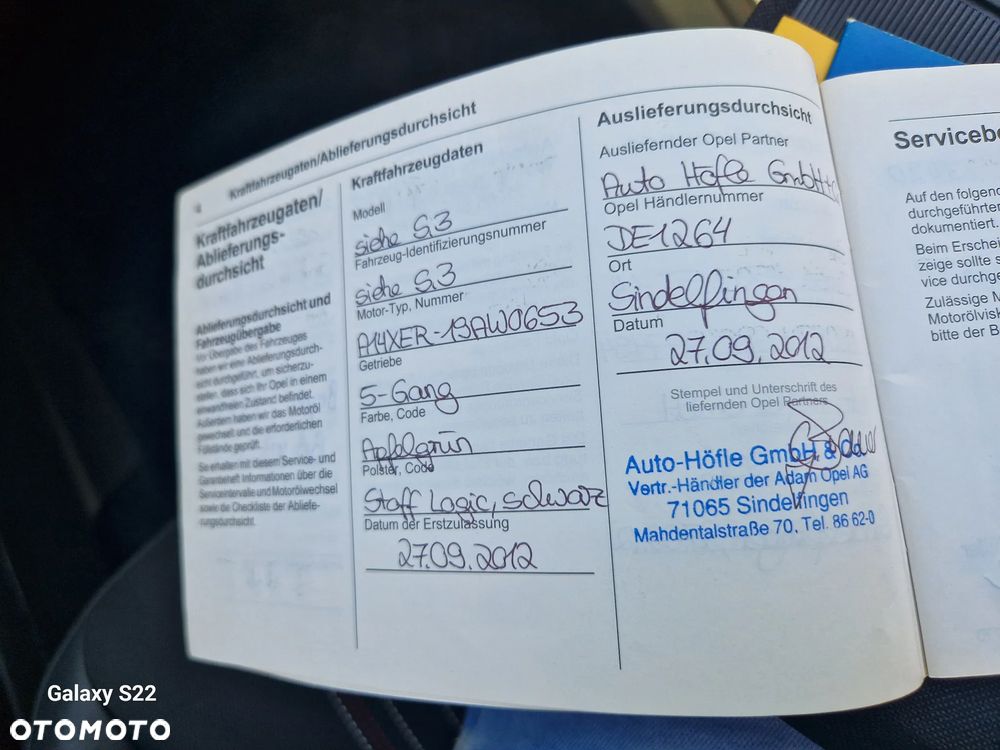 Kraftfahrzeugaten/Ablieferungsdurchsicht
Kraftfahrzeugaten/
Ablieferungs-
durchsicht
Ablieferungsdurchsicht und
Fahrzeugübergabe
Vor Übergabe des Fahrzeuges
haben wir eine Ablieferungsdurch-
sicht durchgeführt, um sicherzu-
stellen, dass sich Ihr Opel in einem
einwandfreien Zustand befindet.
Außerdem haben wir das Motoröl
gewechselt und die erforderlichen
Füllstände geprüft.
Sie erhalten mit diesem Service- und
Garantieheft Informationen über die
Serviceintervalle und Motorölwechsel
sowie die Checkliste der Abliefe-
rungsdurchsicht.
Kraftfahrzeugdaten
Modell
siehe S.3
Fahrzeug-Identifizierungsnummer
siehe S.3
Motor-Typ, Nummer
A14XER-19AW0653
Getriebe
5-Gang
Farbe, Code
Apfelgrün
Polster, Code
Stoff Logic, schwarz
Datum der Erstzulassung
27.09.2012
Auslieferungsdurchsicht
Ausliefernder Opel Partner
Auto Höfle GmbH
Opel Händlernummer
DE1264
Ort
Sindelfingen
Datum
27.09.2012
Stempel und Unterschrift des
liefernden Opel Partners
Auto-Höfle GmbH &
Vertr.-Händler der Adam Opel AG
71065 Sindelfingen
Mahdentalstraße 70, Tel. 86 62-0
Auf den folgend
durchgeführten
dokumentiert.
Beim Erschei
zeige sollte s
vice durchge
Zulässige M
Motorölvisk
bitte der B
Galaxy S22
OTOMOTO